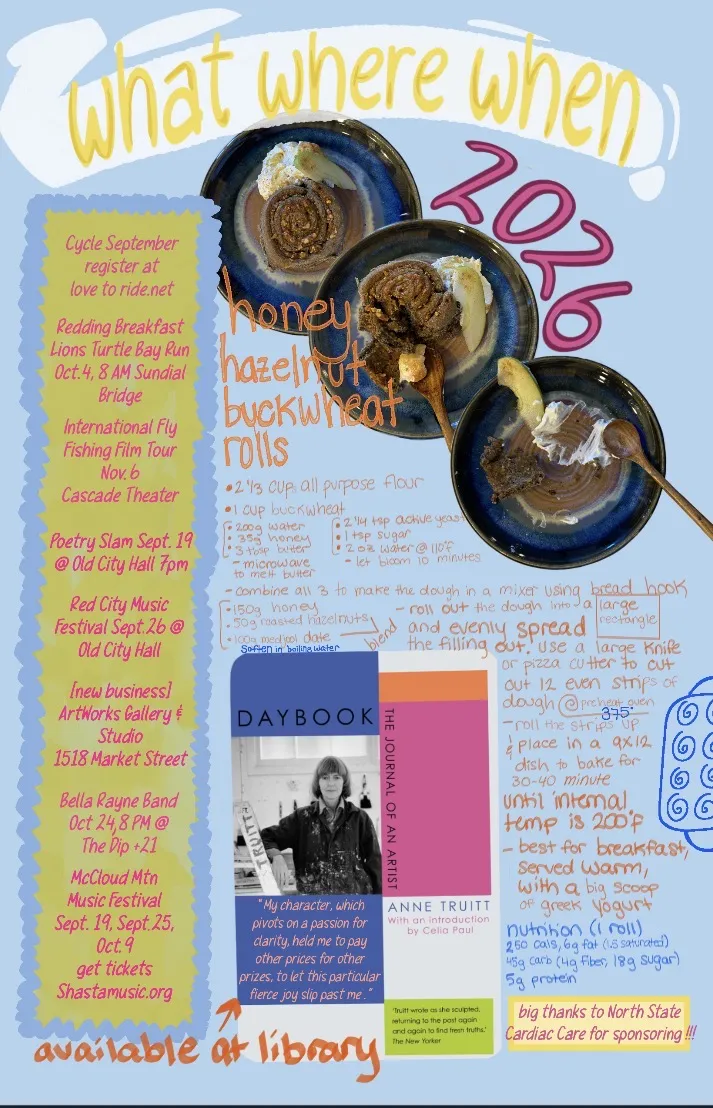 what where when
2026
Cycle September
register at
love to ride.net
Redding Breakfast
Lions Turtle Bay Run
Oct.4, 8 AM Sundial
Bridge
International Fly
Fishing Film Tour
Nov. 6
Cascade Theater
Poetry Slam Sept. 19
@ Old City Hall 7pm
Red City Music
Festival Sept.26 @
Old City Hall
[new business]
ArtWorks Gallery &
Studio
1518 Market Street
Bella Rayne Band
Oct 24,8 PM @
The Dip +21
McCloud Mtn
Music Festival
Sept. 19, Sept.25,
Oct.9
get tickets
Shastamusic.org
honey
hazelnut
buckwheat
rolls
• 2 1/3 cup all purpose flour
• 1 cup buckwheat
• 200g water
• 35g honey
• 3 tbsp butter
- microwave
to melt butter
• 2 1/4 tsp active yeast
• 1 tsp sugar
• 2 oz water @ 110°F
- let bloom 10 minutes
- combine all 3 to make the dough in a mixer using bread hook
• 150g honey
• 50g roasted hazelnuts
• 100g medjool date
Soften in boiling water
blend
- roll out the dough into a large
rectangle
and evenly spread
the filling out. Use a large knife
or pizza cutter to cut
out 12 even strips of
dough @ preheat oven
375°
- roll the strips up
& place in a 9x12
dish to bake for
30-40 minute
until internal
temp is 200°F
- best for breakfast,
served warm,
with a big scoop
of greek yogurt
nutrition (1 roll)
250 cals, 6g fat (1.5 saturated)
45g carb (4g fiber, 18g sugar)
5g protein
big thanks to North State
Cardiac Care for sponsoring !!!
DAYBOOK
THE JOURNAL OF AN ARTIST
TRUITT
ANNE TRUITT
With an introduction
by Celia Paul
"My character, which
pivots on a passion for
clarity, held me to pay
other prices for other
prizes, to let this particular
fierce joy slip past me."
'Truitt wrote as she sculpted,
returning to the past again
and again to find fresh truths.'
The New Yorker
available at library